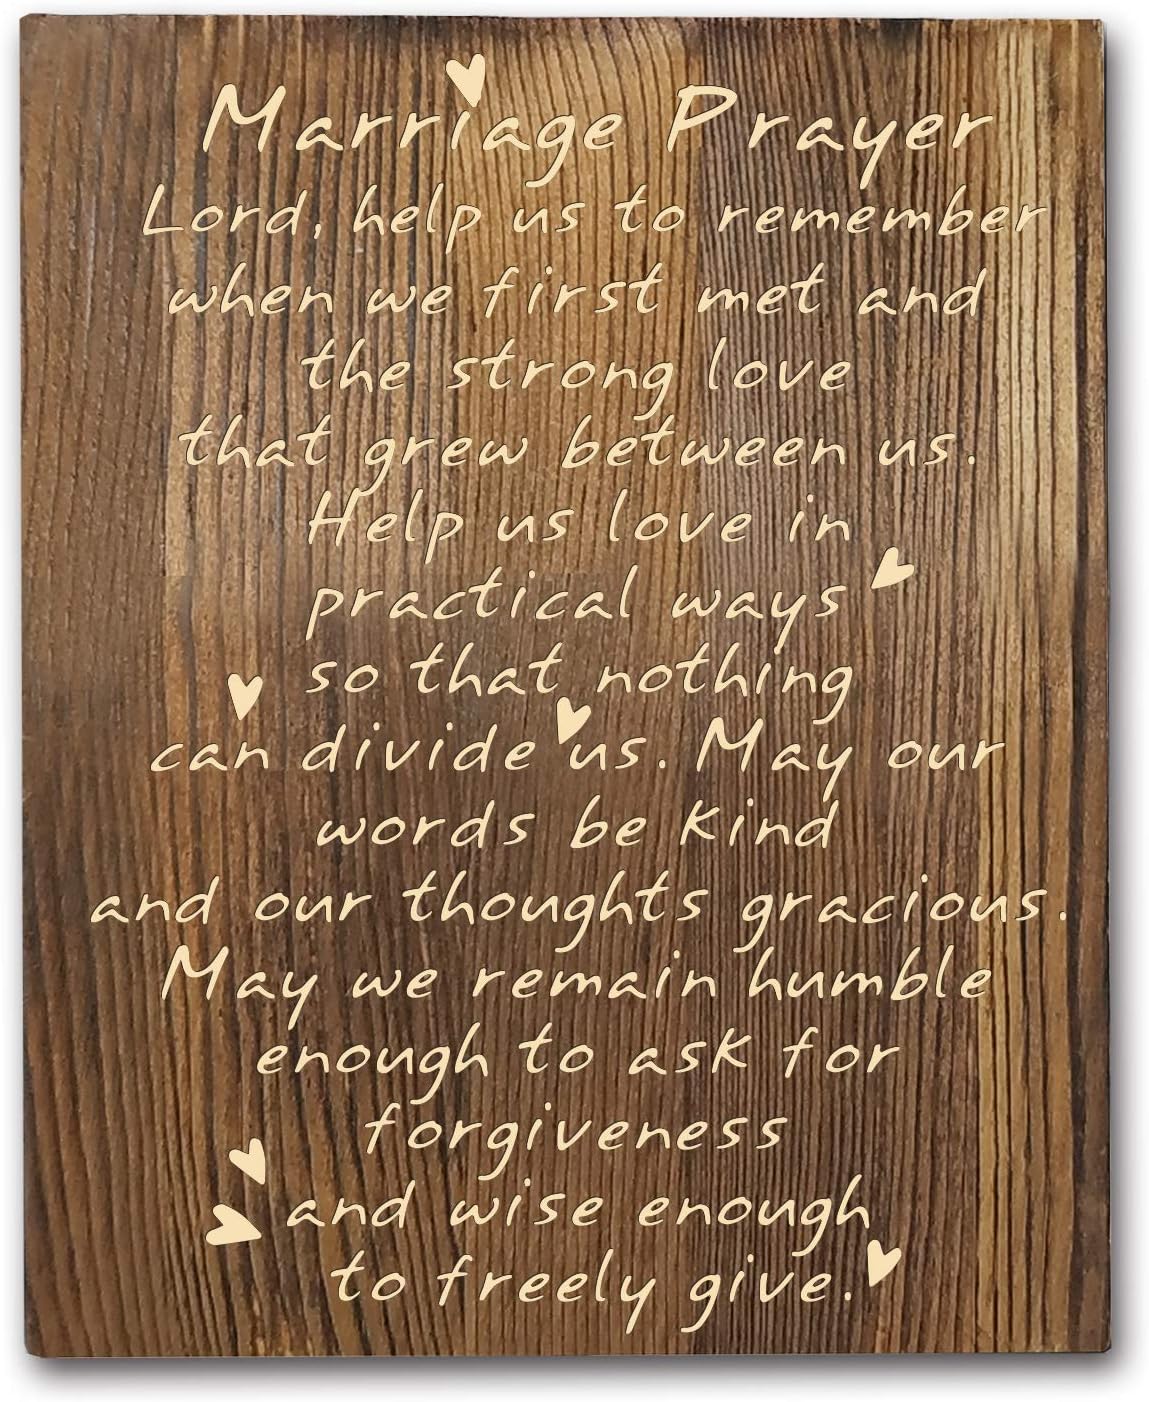 Marriage Prayer
Lord, help us to remember
when we first met and
the strong love
that grew between us.
Help us love in
practical ways
so that nothing
can divide us. May our
words be kind
and our thoughts gracious.
May we remain humble
enough to ask for
forgiveness
and wise enough
to freely give.